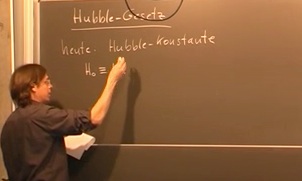 Hubble-Gesetz
heute: Hubble-Konstante
H₀ ≡